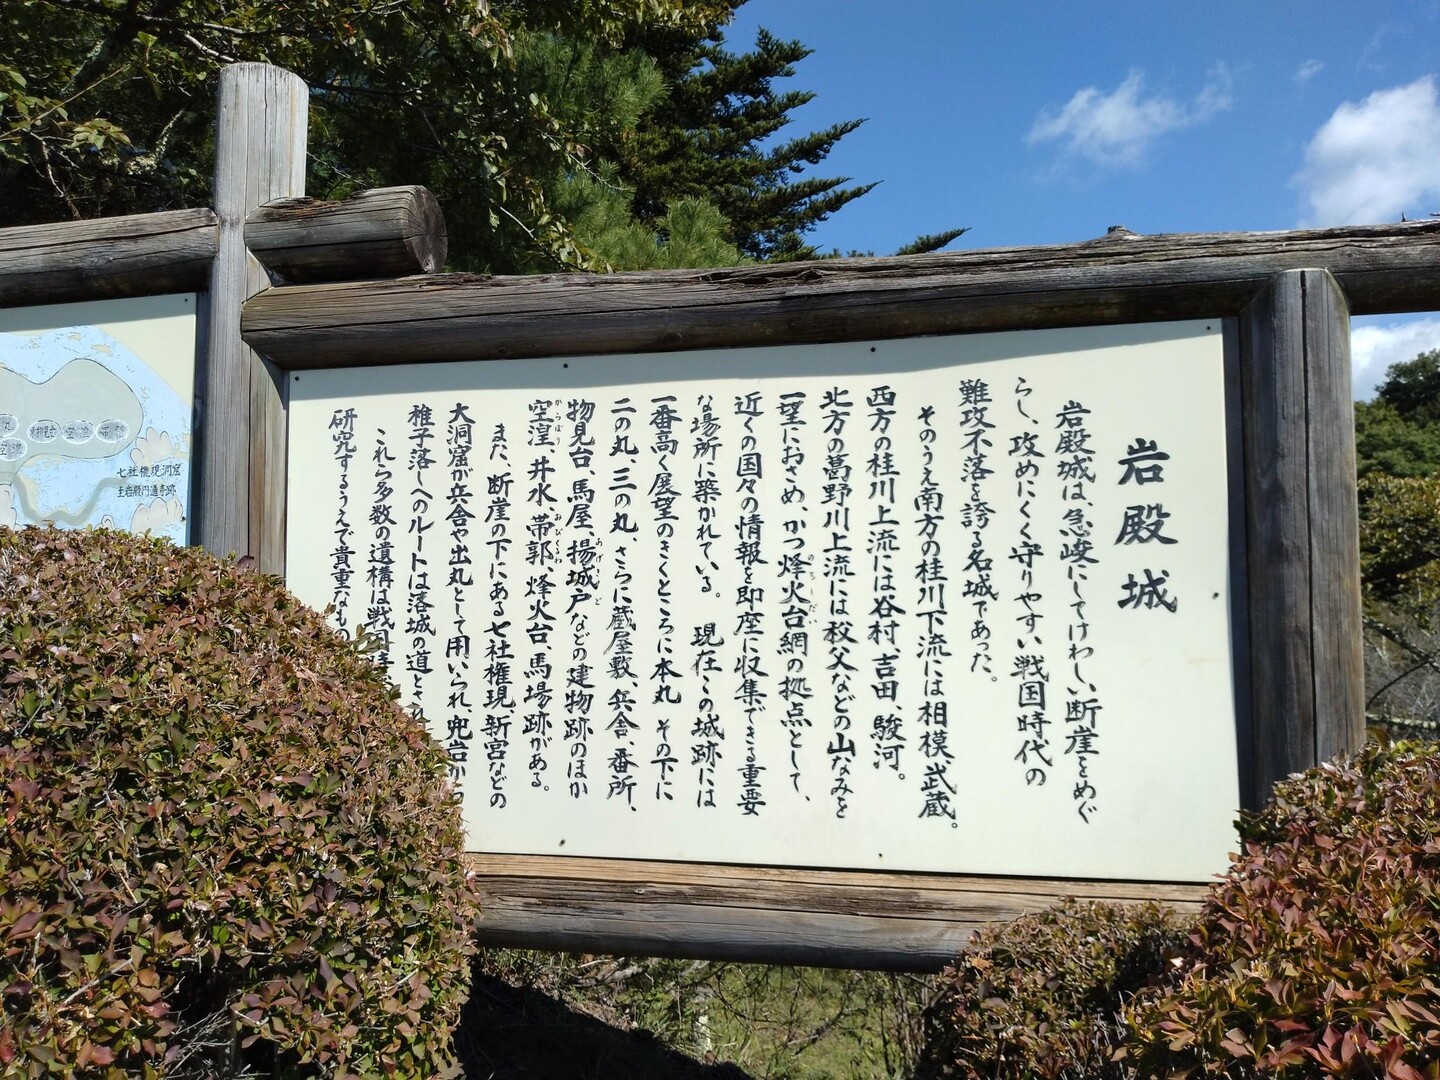 岩殿城
岩殿城は、急峻にしてけわしい断崖をめぐ
らし、攻めにくく守りやすい戦国時代の
難攻不落を誇る名城であった。
そのうえ南方の桂川下流には相模、武蔵。
西方の桂川上流には谷村、吉田、駿河。
北方の葛野川上流には秩父などの山なみを
一望におさめ、かつ烽火台網の拠点として、
近くの国々の情報を即座に収集できる重要
な場所に築かれている。 現在この城跡には
一番高く展望のきくところに本丸 その下に
二の丸、三の丸、さらに蔵屋敷、兵舎、番所、
物見台、馬屋、揚城戸などの建物跡のほか
空湟、井水、帯郭、烽火台、馬場跡がある。
また、断崖の下にある七社権現、新宮などの
大洞窟が兵舎や出丸として用いられ、兜岩から
稚子落しへのルートは落城の道とされ
これら多数の遺構は戦国時
研究するうえで貴重なもの
七社権現洞窟
主岩殿円通寺跡